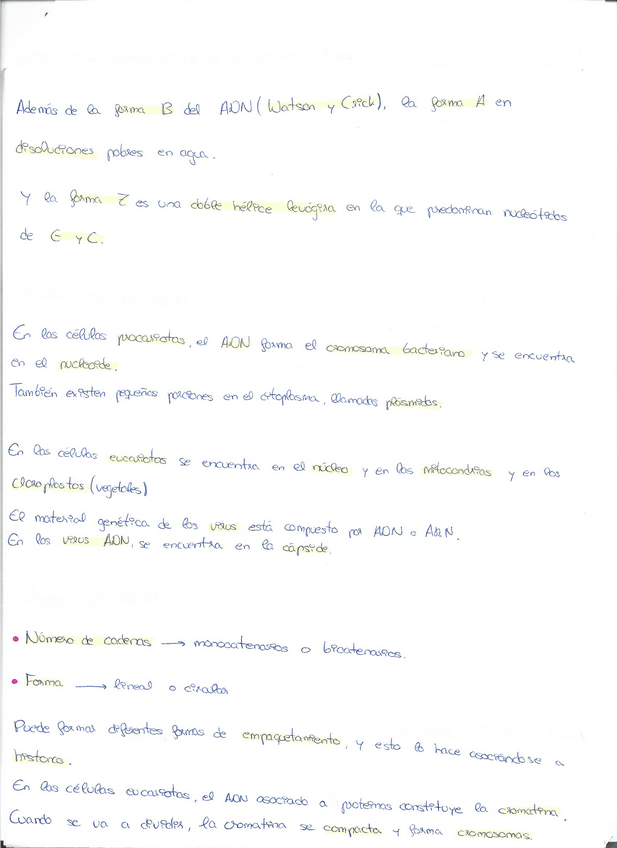 Además de la forma B del ADN (Watson y Crick), la forma A en
disoluciones pobres en agua.
Y la forma Z es una doble hélice levógira en la que predominan nucleótidos
de G y C.
En las células procariotas, el ADN forma el cromosoma bacteriano y se encuentra
en el nucleoide.
También existen pequeñas porciones en el citoplasma, llamadas plásmidos.
En las células eucariotas se encuentra en el núcleo y en las mitocondrias y en los
cloroplastos (vegetales)
El material genético de los virus está compuesto por ADN o ARN.
En los virus ADN, se encuentra en la cápside.
• Número de cadenas → monocatenarios o bicatenarios.
• Forma → lineal o circular
Puede formar diferentes formas de empaquetamiento, y esto lo hace asociándose a
histonas.
En las células eucariotas, el ADN asociado a proteínas constituye la cromatina.
Cuando se va a dividir, la cromatina se compacta y forma cromosomas.